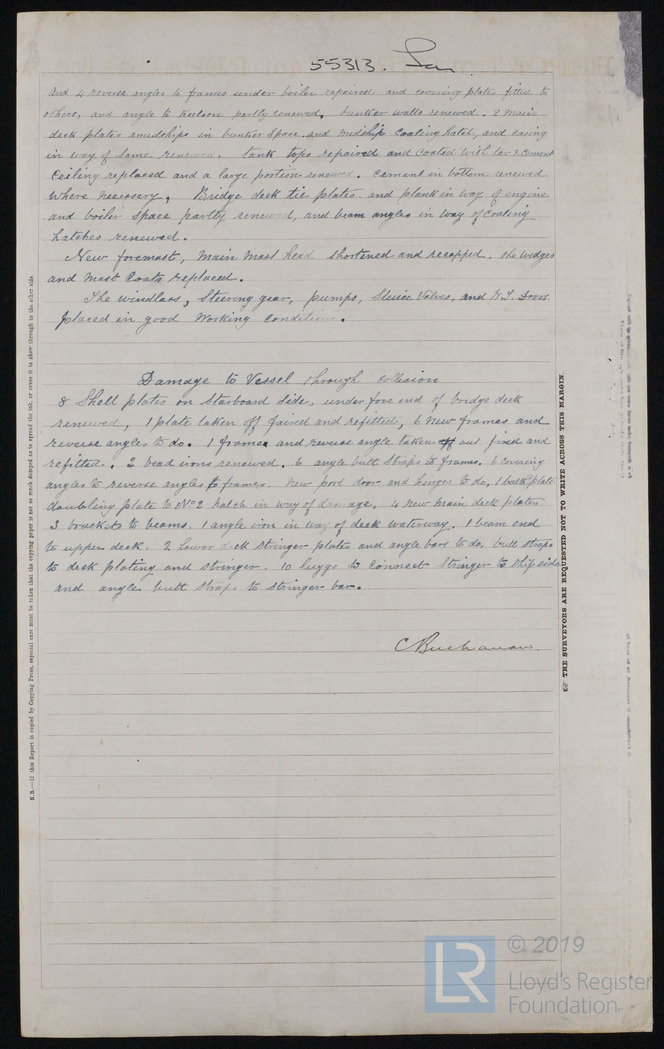 55313.
and 4 reverse angles to frames under boiler repaired and covering plates fitted to
others, and angle to Keelson partly renewed, bunker walls renewed. 2 main
deck plates amidships in bunker space and midship coaling hatch, and casing
in way of same renewed. tank tops repaired and coated with tar & cement
Ceiling replaced and a large portion renewed. Cement in bottom renewed
where necessary, Bridge deck tie plates and plank in way of engine
and boiler space partly renewed, and beam angles in way of coaling
hatches renewed.
New foremast, main mast head shortened and recapped, the wedges
and mast Coats replaced.
The windlass, Steering gear, pumps, Sluice Valves, and W.T. doors
placed in good Working Condition.
Damage to Vessel through collision
8 Shell plates on Starboard side, under fore end of bridge deck
renewed, 1 plate taken off faired and refitted, 6 New frames and
reverse angles to do. 1 frame and reverse angle taken out faired and
refitted. 2 bead irons renewed. 6 angle butt Straps to frames. 6 covering
angles to reverse angles to frames. New port door and hinges to do, 1 bulk plate
doubling plate to No 2 hatch in way of damage, 4 new main deck plates
3 brackets to beams. 1 angle iron in way of deck waterway. 1 beam end
to upper deck. 2 lower deck stringer plates and angle bars to do, butt straps
to deck plating and stringer. 10 luggs to connect Stringer to Ship side
and angle butt straps to stringer bar.
C Buchanan
N.B.—If this Report is copied by Copying Press, especial care must be taken that the copying paper is not so much damped as to spread the ink, or cause it to show through to the other side.
THE SURVEYORS ARE REQUESTED NOT TO WRITE ACROSS THIS MARGIN.
LR
© 2019
Lloyd's Register
Foundation